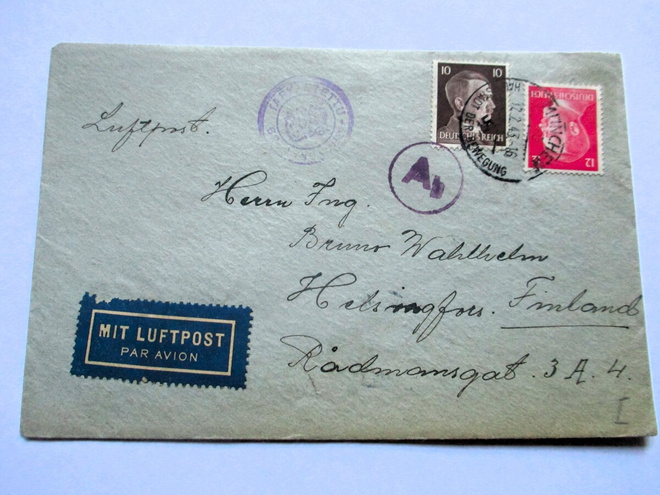 Luftpost.
10 10
DEUTSCHES REICH
12
DEUTSCHES REICH
MÜNCHEN
12.2.43.-16
STADT DER BEWEGUNG
Ab
Herrn Ing.
Bruno Wahlhelm
Helsingfors. Finland
Rådmansgat. 3 A. 4.
MIT LUFTPOST
PAR AVION
I